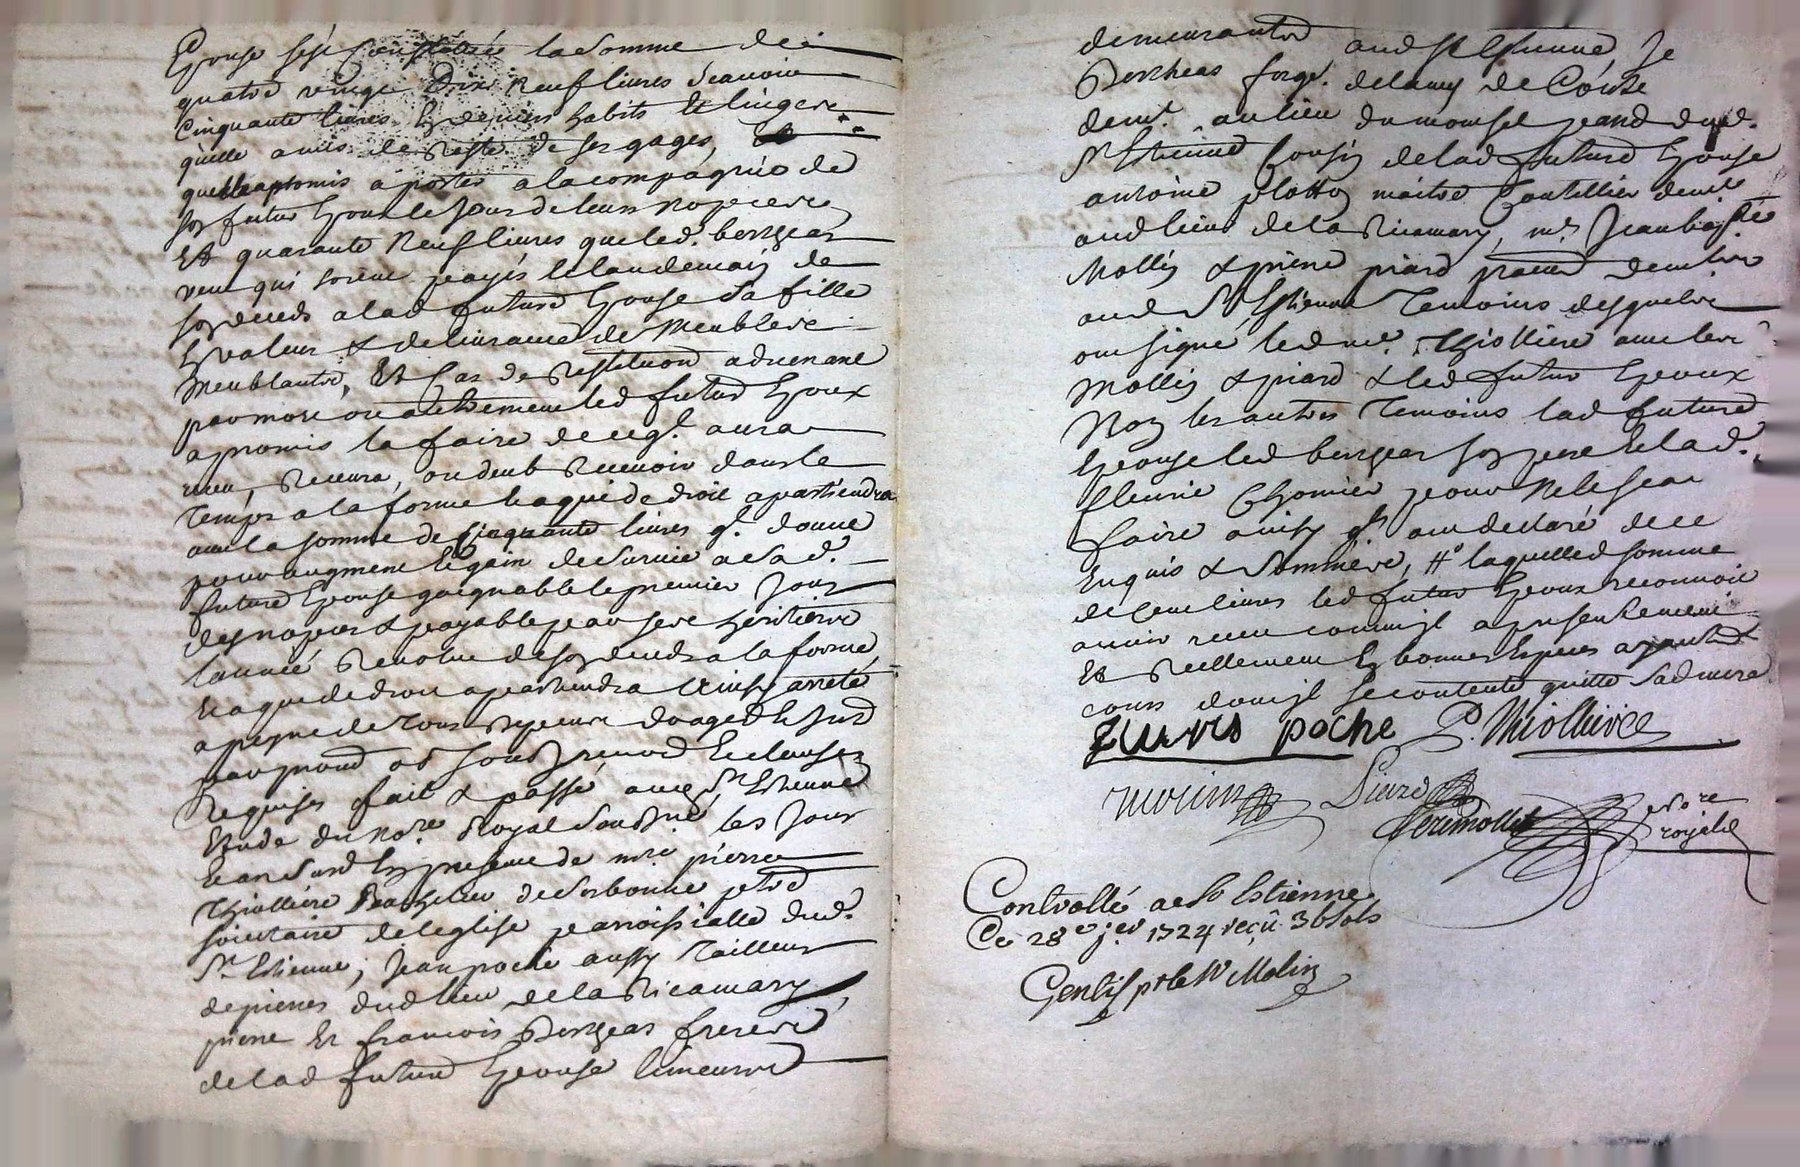 Epouse s'est Constituée la somme de
quatre vingt Dix Neuf livres scavoir
Cinquante livres En deniers habits & linges
qu'elle a mis de Reste de ses gages,
quelle a promis aporter a la compagnie de
son futur Epoux le Jour de leurs nopces
Et quarante Neuf livres que led. bergeas
veut qui soient payés le landemain de
son deceds a lad future Epouse sa fille
En valeur & delivrance de Meubles
Meublants, Et Cas de Restitution advenant
par mort ou autrement led futur Epoux
a promis la faire de ce ql. aura
receu, Recevra, ou deub Recevoir dans le
Temps a la forme & a qui de droit apartiendra
avec la somme de Cinquante livres ql. donne
pour augment & gain de survie a sad.
future Epouse gaignable le premier Jour
des nopces & payable par ses heritiers
l'année Revolue de son deceds a la forme
& a qui de droit apartiendra Ainsy arreté
a peyne de Tous despens domages
Requises fait & passé aud St Estienne
Etude du Nore Royal soussigné les Jour
& an susd En presence de mre pierre
Thiolliere Bachelier de sorbonne ptre
societaire de l'eglise parroissialle dud.
St Estienne, Jean poche aussy Tailleur
de pierres dud lieu de la Ricamary
pierre Et francois Bergeas freres
de lad future Epouse
demeurants aud St Estienne, Je
Bergeas forge.
demt. au lieu du monsel pand dud.
St Estienne Cousin de lad future Epouse
antoine plotton maitre Coutellier demt
aud lieu de la Ricamary, mes Jean baptte
Mollin & pierre piard pratd demts
aud St Estienne Temoins desquels
ont signé led mre Thiolliere avec les
Mollin & piard & led futur Epoux
Non les autres Temoins lad future
Epouse led bergeas son pere & lad.
fleurie Chomier pour Ne le scav
faire ainsy qls ont declaré de ce
Enquis & Sommés, # laquelle somme
de Cent livres led futur Epoux reconnoit
avoir receu comme il a presentement
Et Reellement En bonnes Especes ayant
cours dont il se contente quitte sad mere
poche P. Thiolliere
Morin Piard
notre
royal
Controllé a St Estienne
Ce 28e jer 1724 reçû 36 sols
Gentil pr le Sr Molin